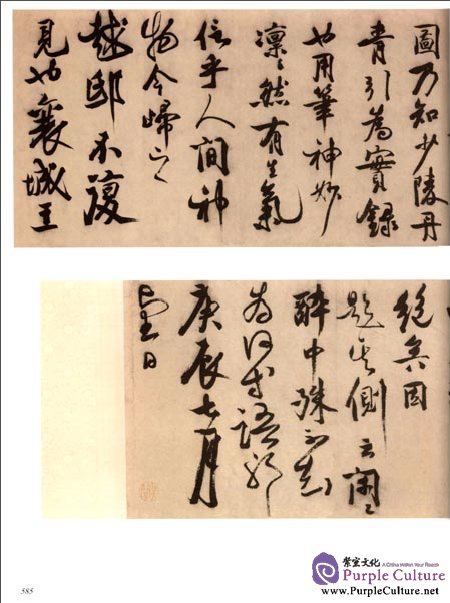 圖乃知少陵丹
青引為實錄
也用筆神妙
凛〻然有生氣
信乎人間神
物今歸之
越邸不復
見也襄城王
絶矣因
題其側云閑〻
醉中殊不知
為何等語耶
庚辰七月
望日
585
A China Within Your Reach
Purple Culture
www.PurpleCulture.net